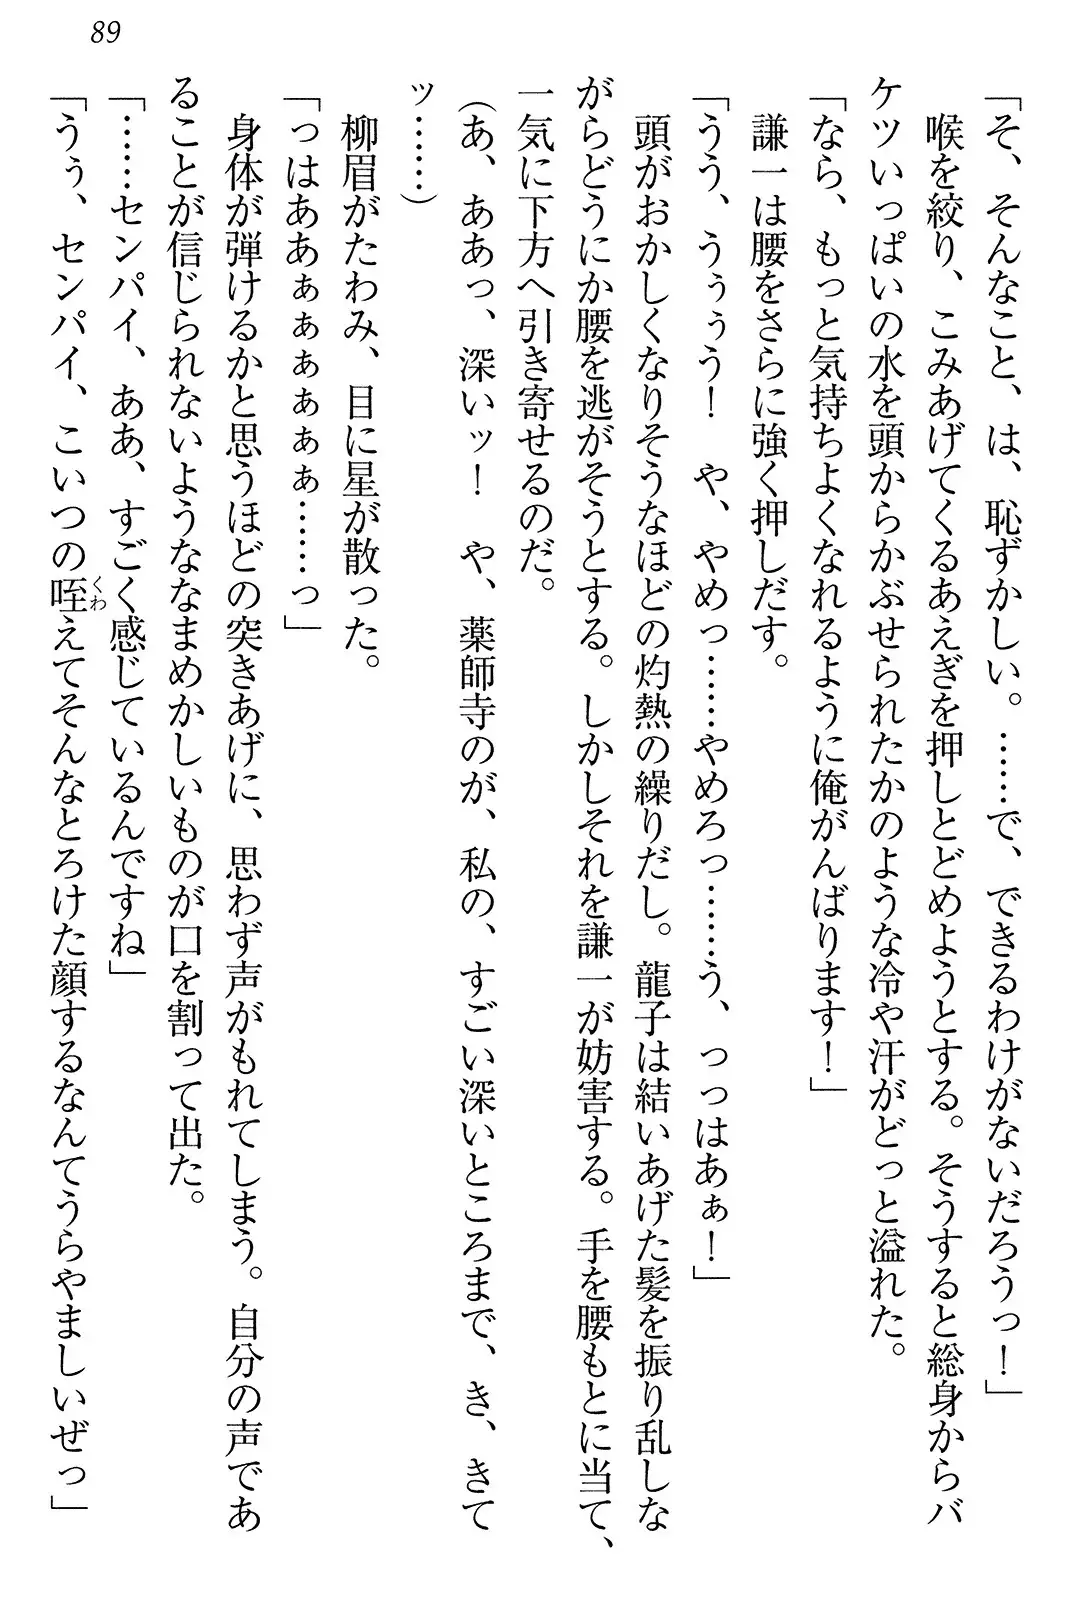 89
「そ、そんなこと、は、恥ずかしい。……で、できるわけがないだろうっ！」
喉を絞り、こみあげてくるあえぎを押しとどめようとする。そうすると総身からバ
ケツいっぱいの水を頭からかぶせられたかのような冷や汗がどっと溢れた。
「なら、もっと気持ちよくなれるように俺がんばります！」
謙一は腰をさらに強く押しだす。
「うう、うぅぅう！　や、やめっ……やめろっ……う、っっはあぁ！」
頭がおかしくなりそうなほどの灼熱の繰りだし。龍子は結いあげた髪を振り乱しな
がらどうにか腰を逃がそうとする。しかしそれを謙一が妨害する。手を腰もとに当て、
一気に下方へ引き寄せるのだ。
（あ、ああっ、深いッ！　や、薬師寺のが、私の、すごい深いところまで、き、きて
ッ……）
柳眉がたわみ、目に星が散った。
「っはああぁぁぁぁぁぁ……っ」
身体が弾けるかと思うほどの突きあげに、思わず声がもれてしまう。自分の声であ
ることが信じられないようななまめかしいものが口を割って出た。
「……センパイ、ああ、すごく感じているんですね」
「うぅ、センパイ、こいつの咥くわえてそんなとろけた顔するなんてうらやましいぜっ」